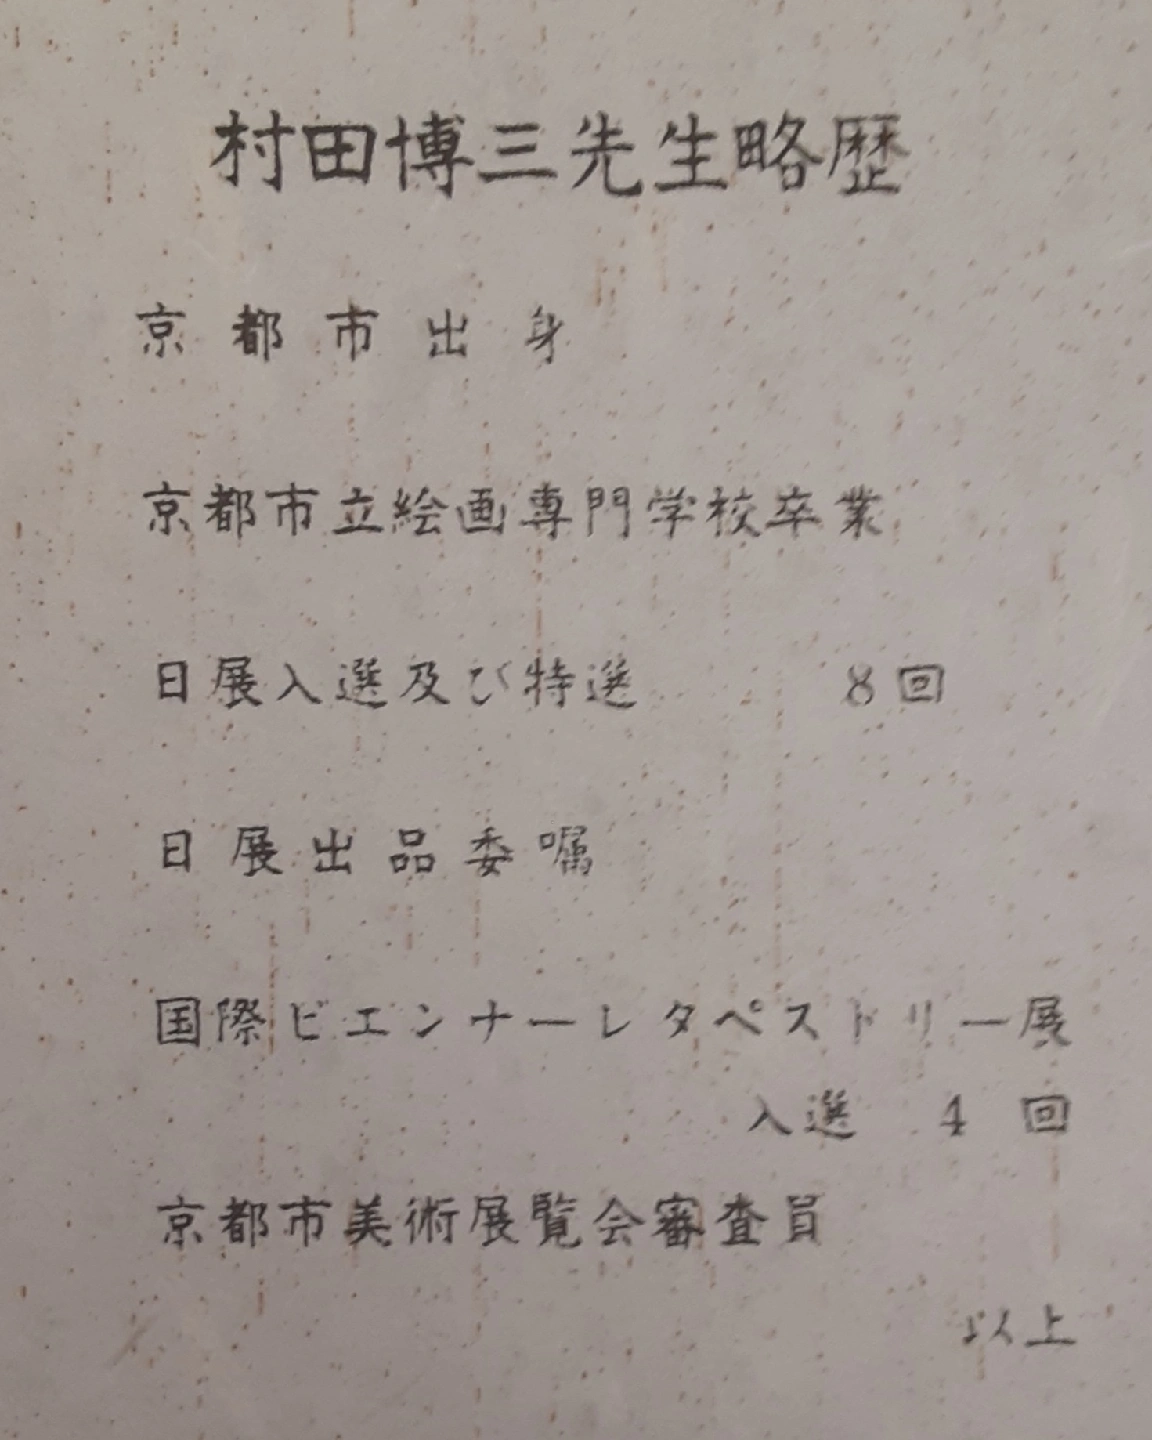 村田博三先生略歴
京都市出身
京都市立絵画専門学校卒業
日展入選及び特選　8回
日展出品委嘱
国際ビエンナーレタペストリー展
入選　4回
京都市美術展覧会審査員
以上